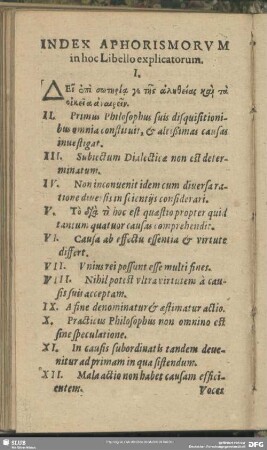 INDEX APHORISMORVM
in hoc Libello explicatorum.
I.
ΔΕῖ ἐπὶ σωτηρίᾳ γε τῆς ἀληθείας καὶ τὰ
οἰκεῖα ἀναιρεῖν.
II. Primus Philosophus suis disquisitioni-
bus omnia constituit, & altissimas causas
investigat.
III. Subiectum Dialecticæ non est deter-
minatum.
IV. Non inconuenit idem cum diversa ra-
tione diuersis in scientijs considerari.
V. Τὸ διὰ τί hoc est quæstio propter quid
tantum quatuor causas comprehendit.
VI. Causa ab effectu essentia & virtute
differt.
VII. Vnius rei possunt esse multi fines.
VIII. Nihil potest vltra virtutem à cau-
sis suis acceptam.
IX. A fine denominatur & æstimatur actio.
X. Practicus Philosophus non omnino est
sine speculatione.
XI. In causis subordinatis tandem deue-
nitur ad primam in qua sistendum.
XII. Mala actio non habet causam effici-
entem. Voces
SLUB
DFG